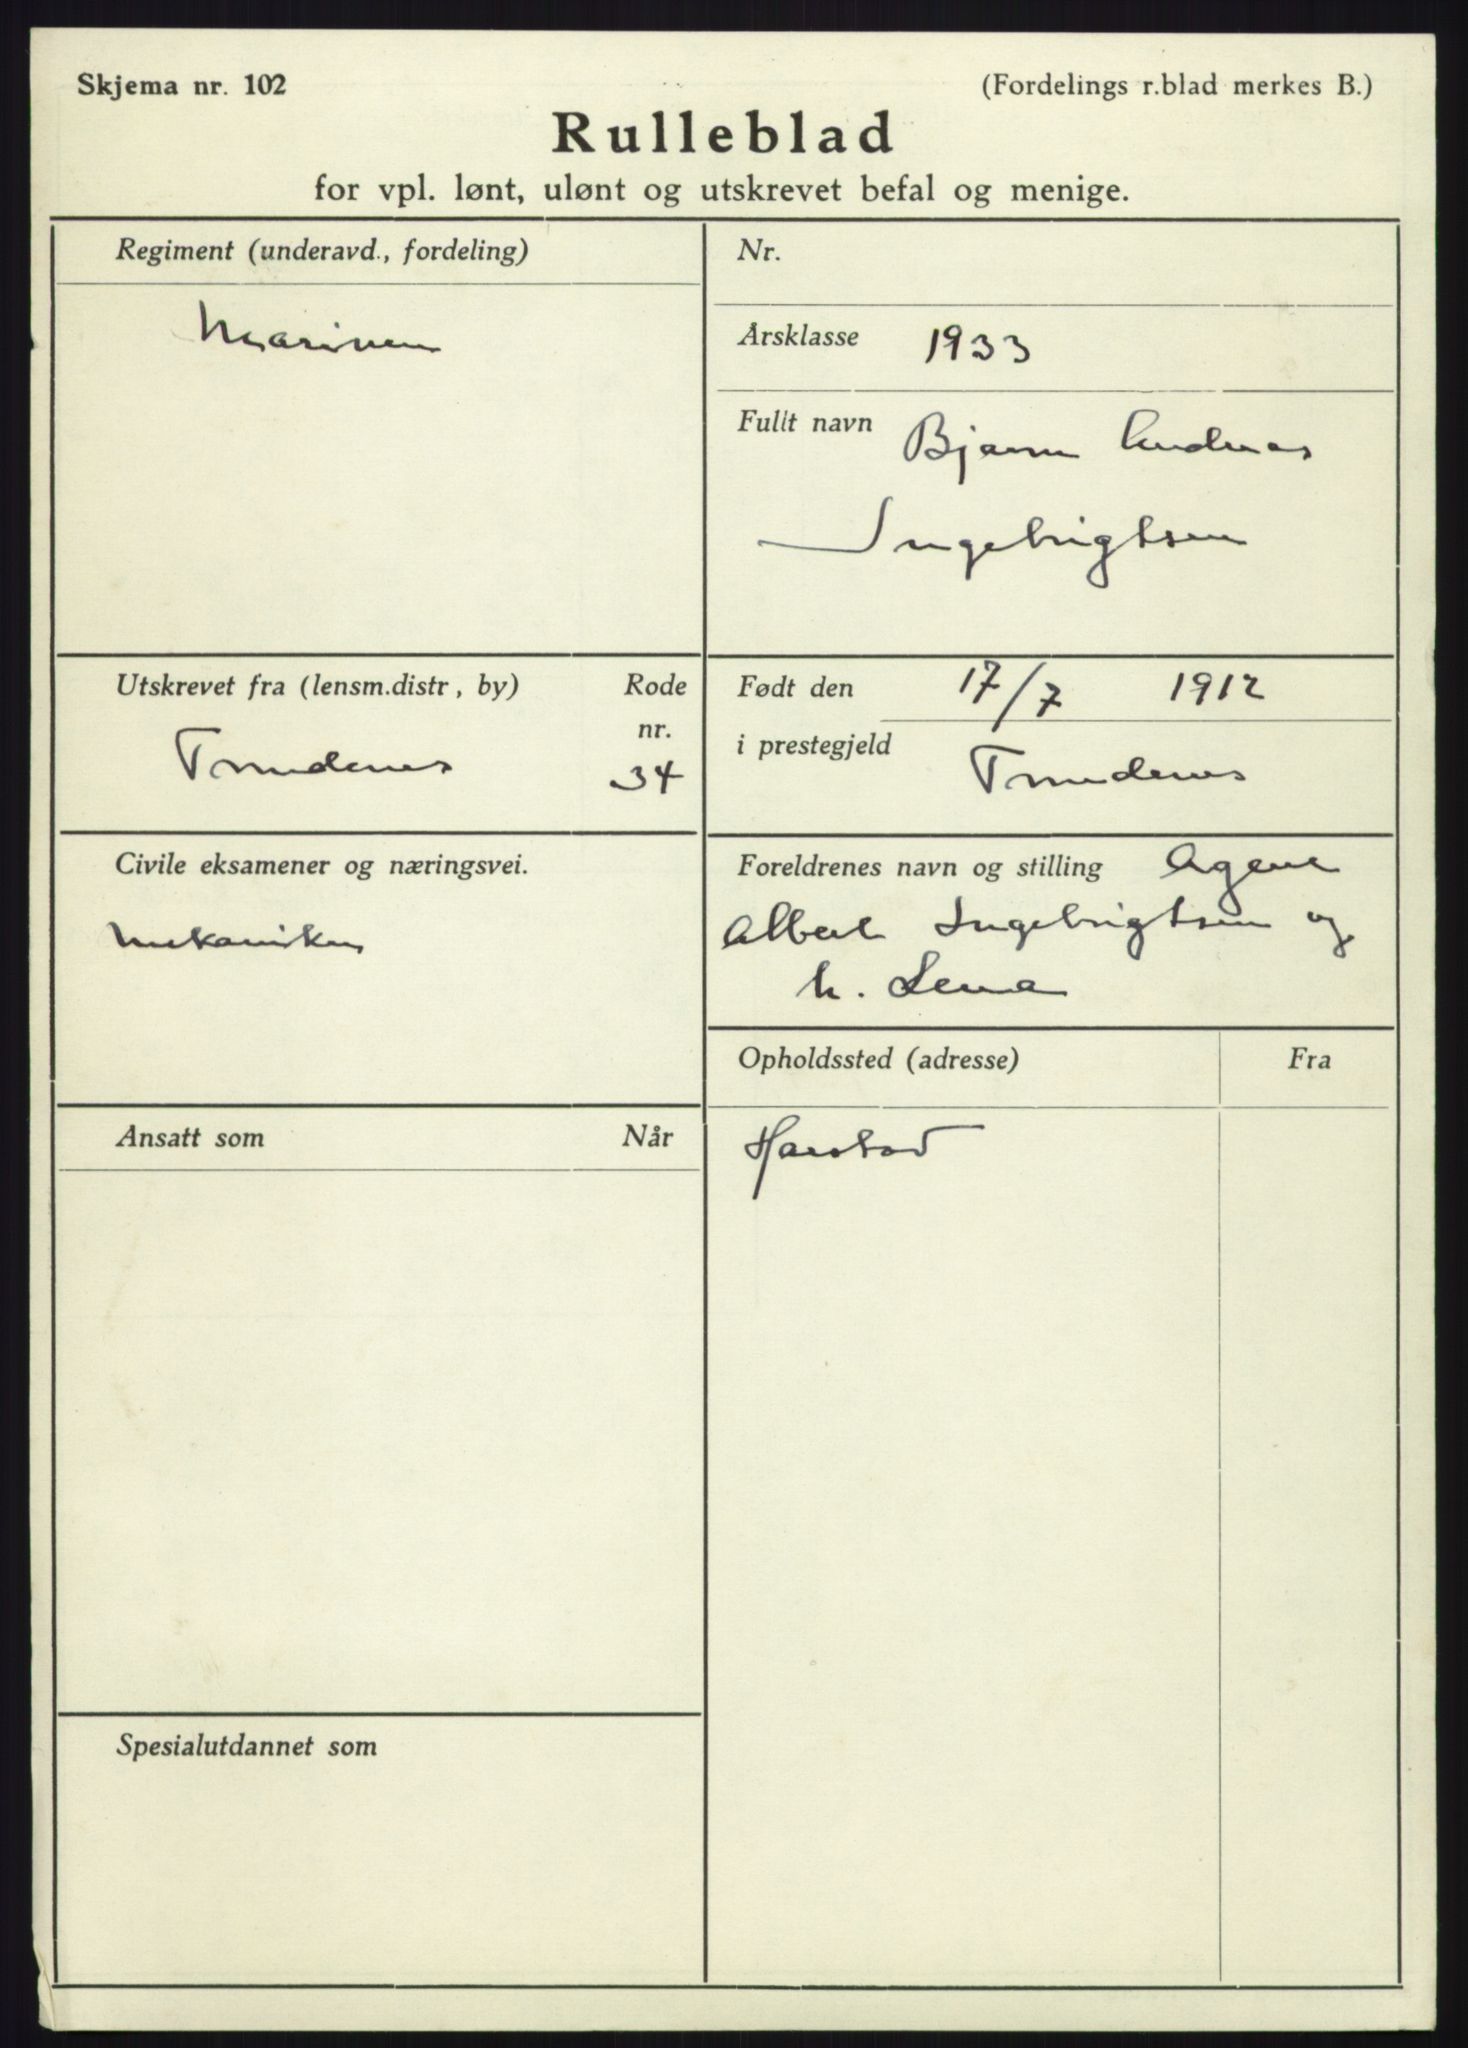 Skjema nr. 102
(Fordelings r.blad merkes B.)
Rulleblad
for vpl. lønt, ulønt og utskrevet befal og menige.
Regiment (underavd., fordeling)
Marinen
Nr.
Årsklasse 1933
Fullt navn Bjarne Andreas
Ingebrigtsen
Utskrevet fra (lensm.distr, by)
Rode
nr.
Trondenes
34
Født den 17/7 1912
i prestegjeld Trondenes
Civile eksamener og næringsvei.
Mekaniker
Foreldrenes navn og stilling Agent
Albert Ingebrigtsen og
h. Lena
Opholdssted (adresse)
Fra
Harstad
Ansatt som
Når
Spesialutdannet som